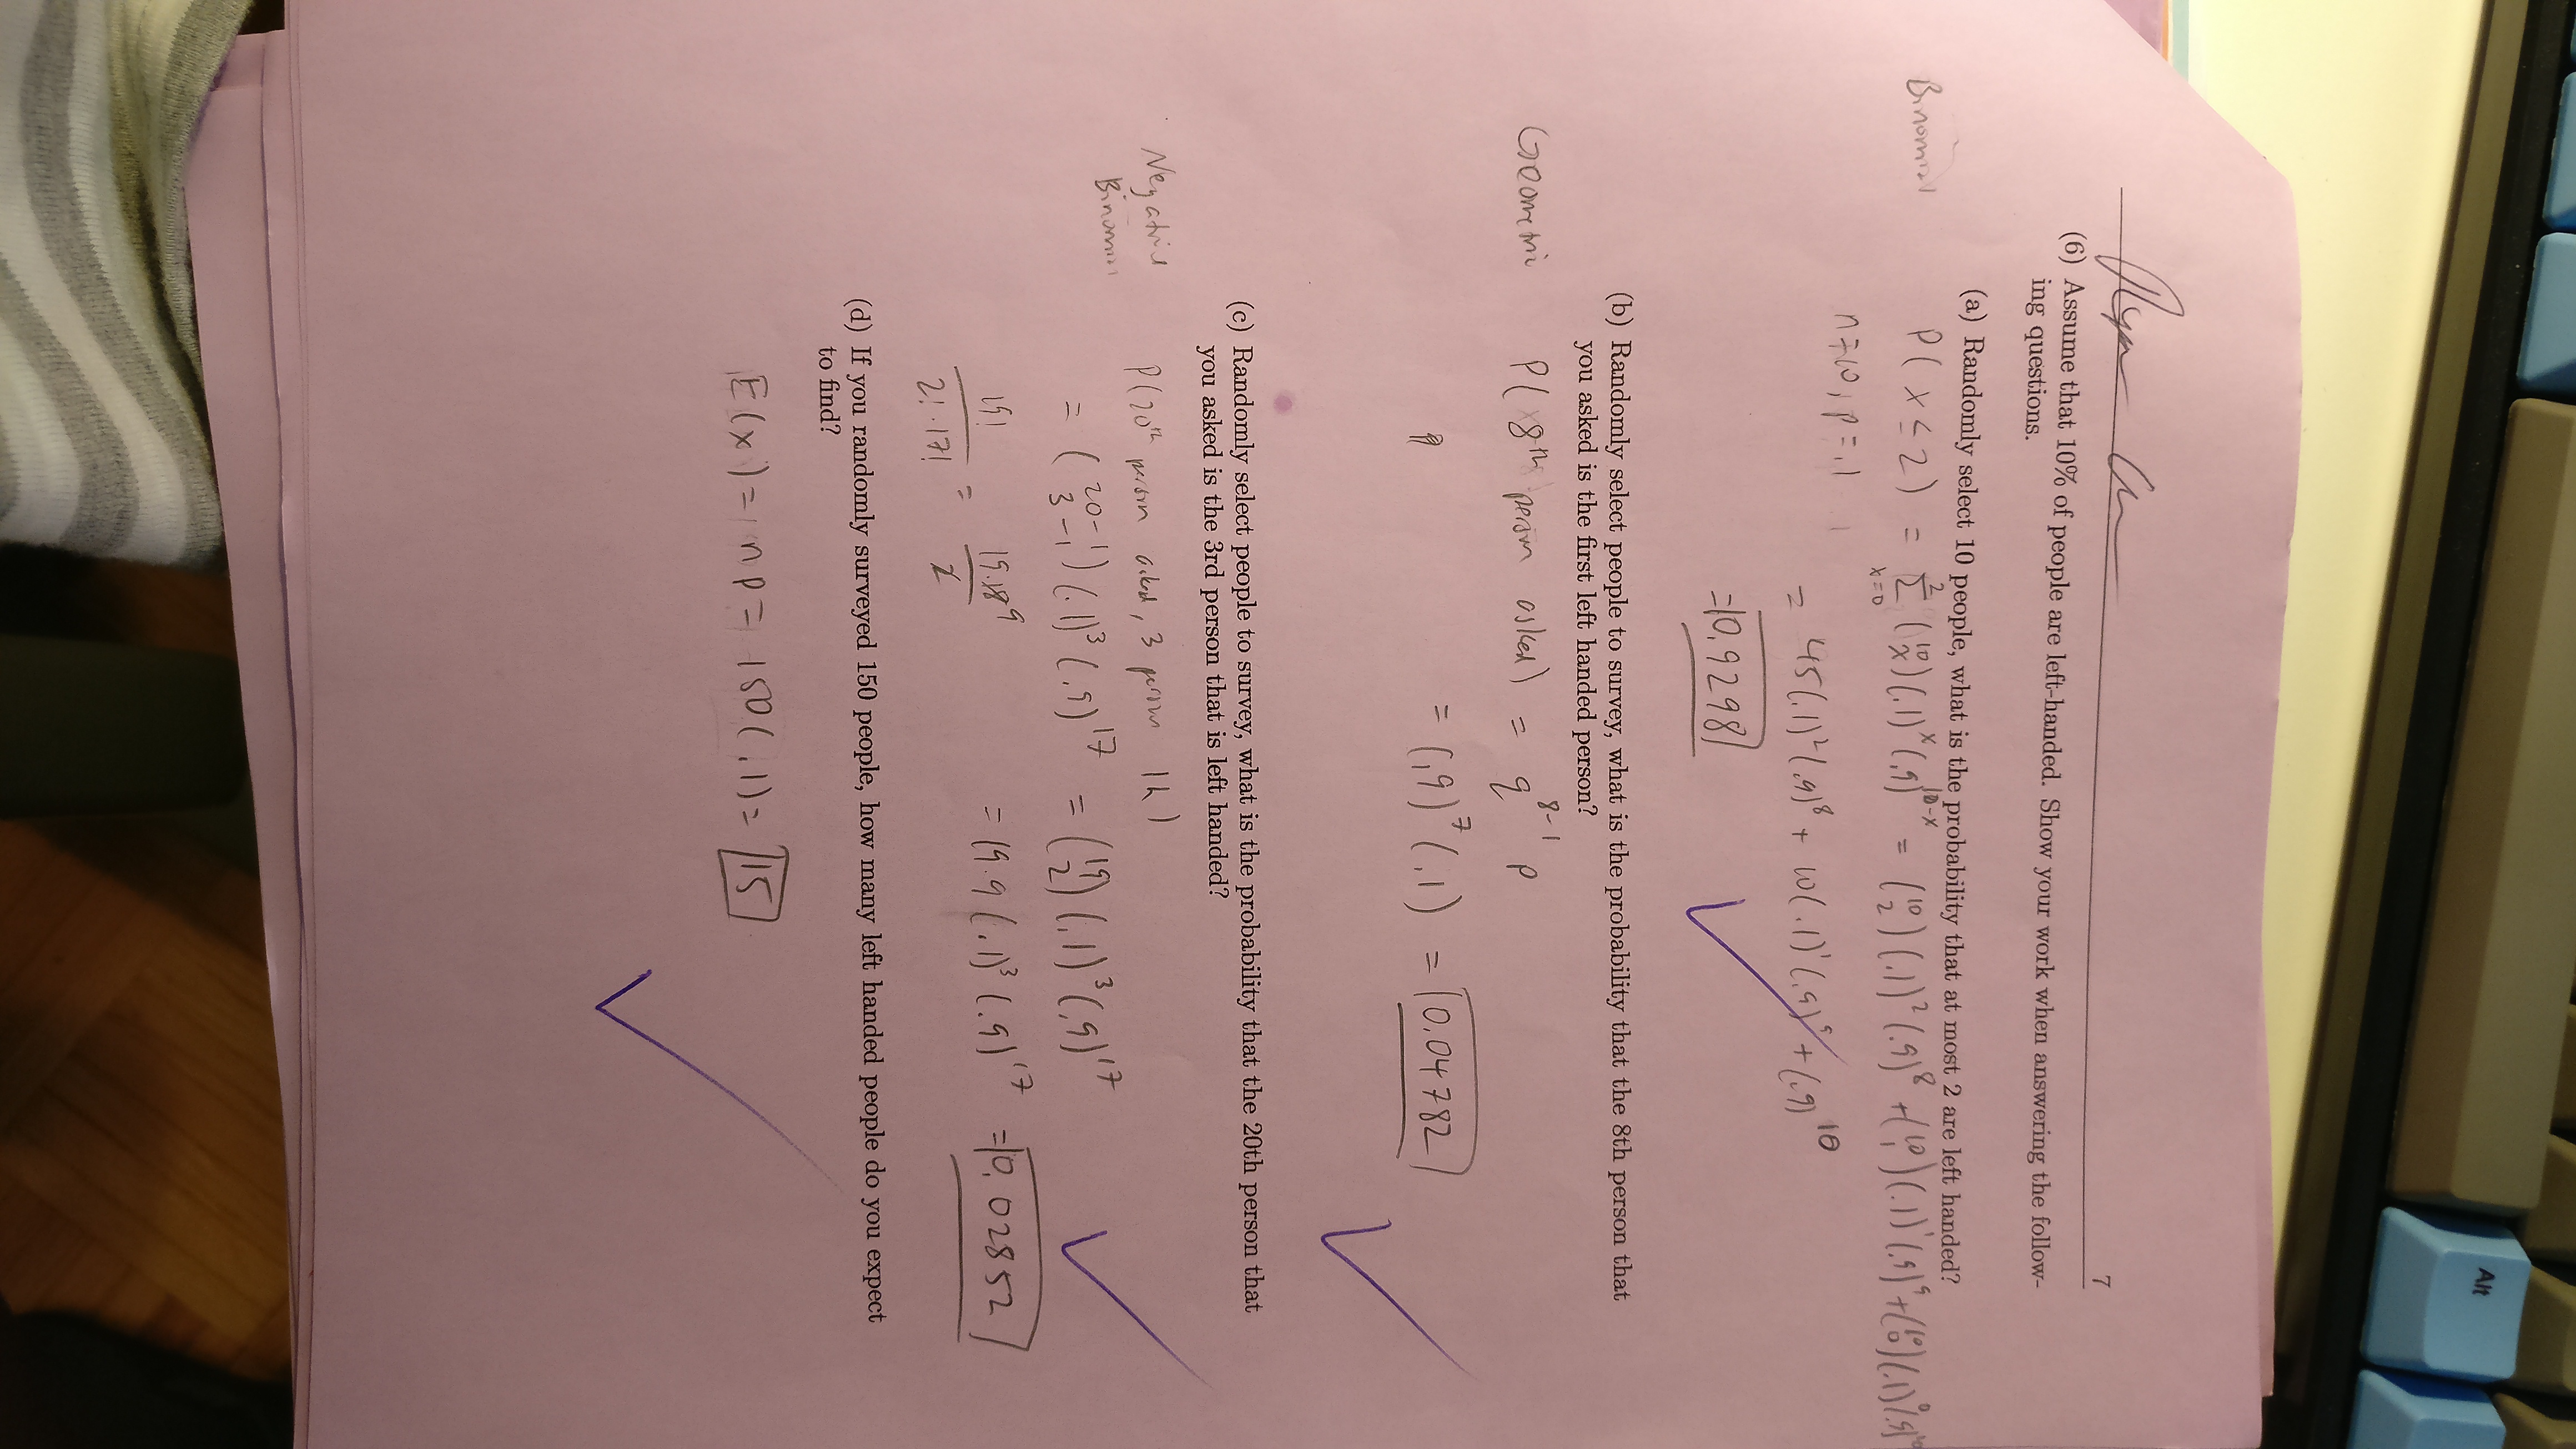 7
(6) Assume that 10% of people are left-handed. Show your work when answering the follow-
ing questions.
(a) Randomly select 10 people, what is the probability that at most 2 are left handed?
Binomial
P(x ≤ 2) = Σ_{x=0}^{2} (10 x)(.1)^x (.9)^{10-x} = (10 2)(.1)^2 (.9)^8 + (10 1)(.1)^1 (.9)^9 + (10 0)(.1)^0 (.9)^{10}
n=10, p=.1
= 45(.1)^2 (.9)^8 + 10(.1)^1 (.9)^9 + (.9)^{10}
= 0.9298
(b) Randomly select people to survey, what is the probability that the 8th person that
you asked is the first left handed person?
Geometric
P(8th person asked) = q^{8-1} p
= (.9)^7 (.1) = 0.04782
(c) Randomly select people to survey, what is the probability that the 20th person that
you asked is the 3rd person that is left handed?
Negative
Binomial
P(20th person asked, 3 person lh)
= (20-1 3-1)(.1)^3 (.9)^{17} = (19 2)(.1)^3 (.9)^{17}
19!/2!·17! = 19·18 9/2 = 19·9(.1)^3 (.9)^{17} = 0.02852
(d) If you randomly surveyed 150 people, how many left handed people do you expect
to find?
E(x) = np = 150(.1) = 15
Alt